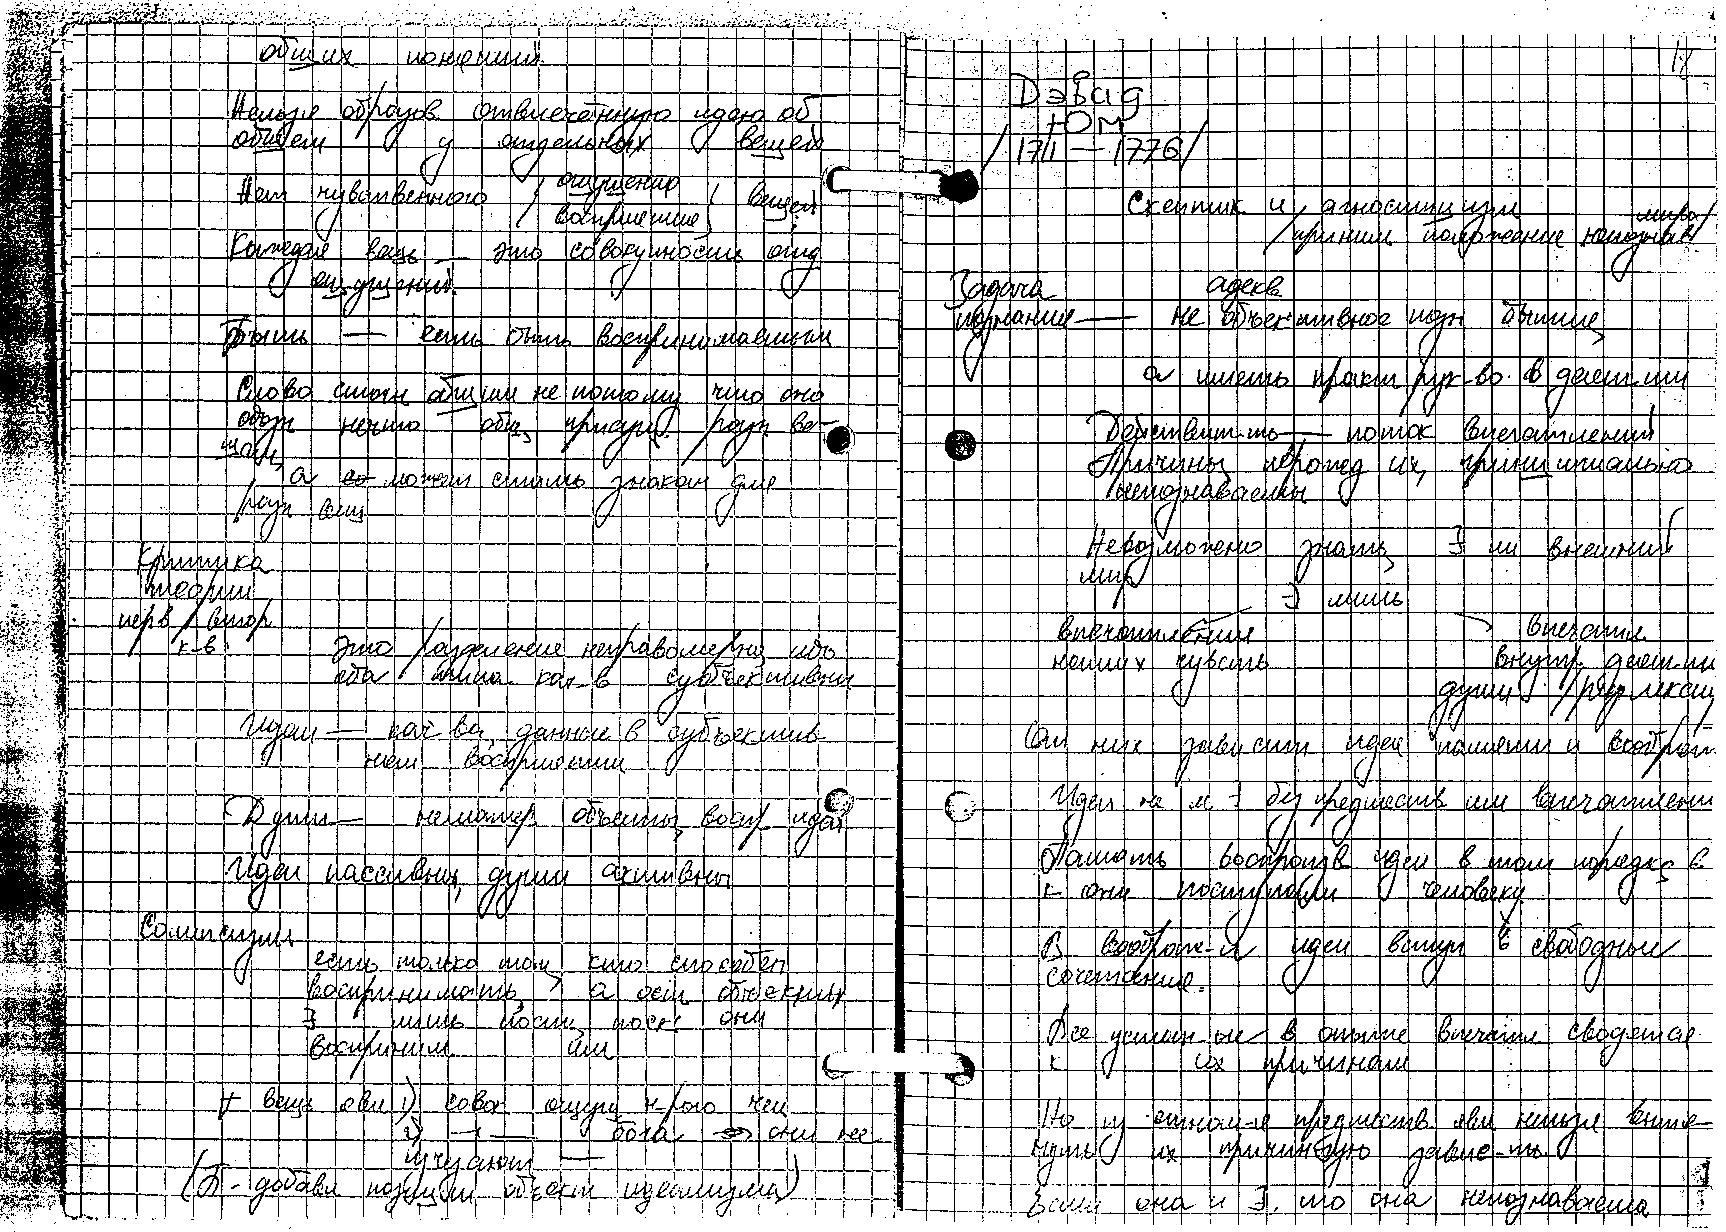 общих понятий
Нельзя образов. отвлечённую идею об
общем у отдельных вещей
Нет чувственного / ощущению
восприятие / вещей
Каждая вещь — это совокупность отд
ощущений.
Быть — есть быть воспринимаемым
Слово стан общим не потому что оно
обозн нечто общ, присущ. разн ве-
щам,
а может стать знаком для
разн вещ
Критика
теории
перв / втор
к-в
Это разделение неправомерно ибо
оба типа кач-в субъективны
Идеи — кач-ва, данные в субъектив
ном восприятии
Души — нематер объекты, воспр идеи
Идеи пассивны, души активны
Солипсизм
есть только тот, кто способен
воспринимать, а ост объекты
∃ лишь постц поск. они
восприним им
∀ вещь явл 1) совок ощущ к-рого чел
2) —"— бога они не
исчезают
(Б - добавл позиции объект идеализма)
18
Дэвид
Юм
/1711 — 1776/
Скептик и агностицизм
/приним положение непознав мира/
Задача
познания — не объективное адекв позн бытия,
а иметь практ рук-во в деят-ти
Действит-ть — поток впечатлений
Причины, порожд их, принципиально
непознаваемы
Невозможно знать, ∃ ли внешний
мир
∃ лишь
впечатления
наших чувств
впечатл
внутр деят-ти
души /рефлексии
От них зависят идеи памяти и воображ
Идеи не м ∃ без предшеств им впечатлени
Память воспроизв идеи в том порядке, в
к они поступали человеку
В воображ-и идеи вступ в свободные
сочетания.
Все усмин-ые в опыте впечатл сводятся
к их причинам
Но из отнош-я предшеств. явл нельзя вытя-
нуть их причинную завис-ть.
Если она и ∃, то она непознаваема